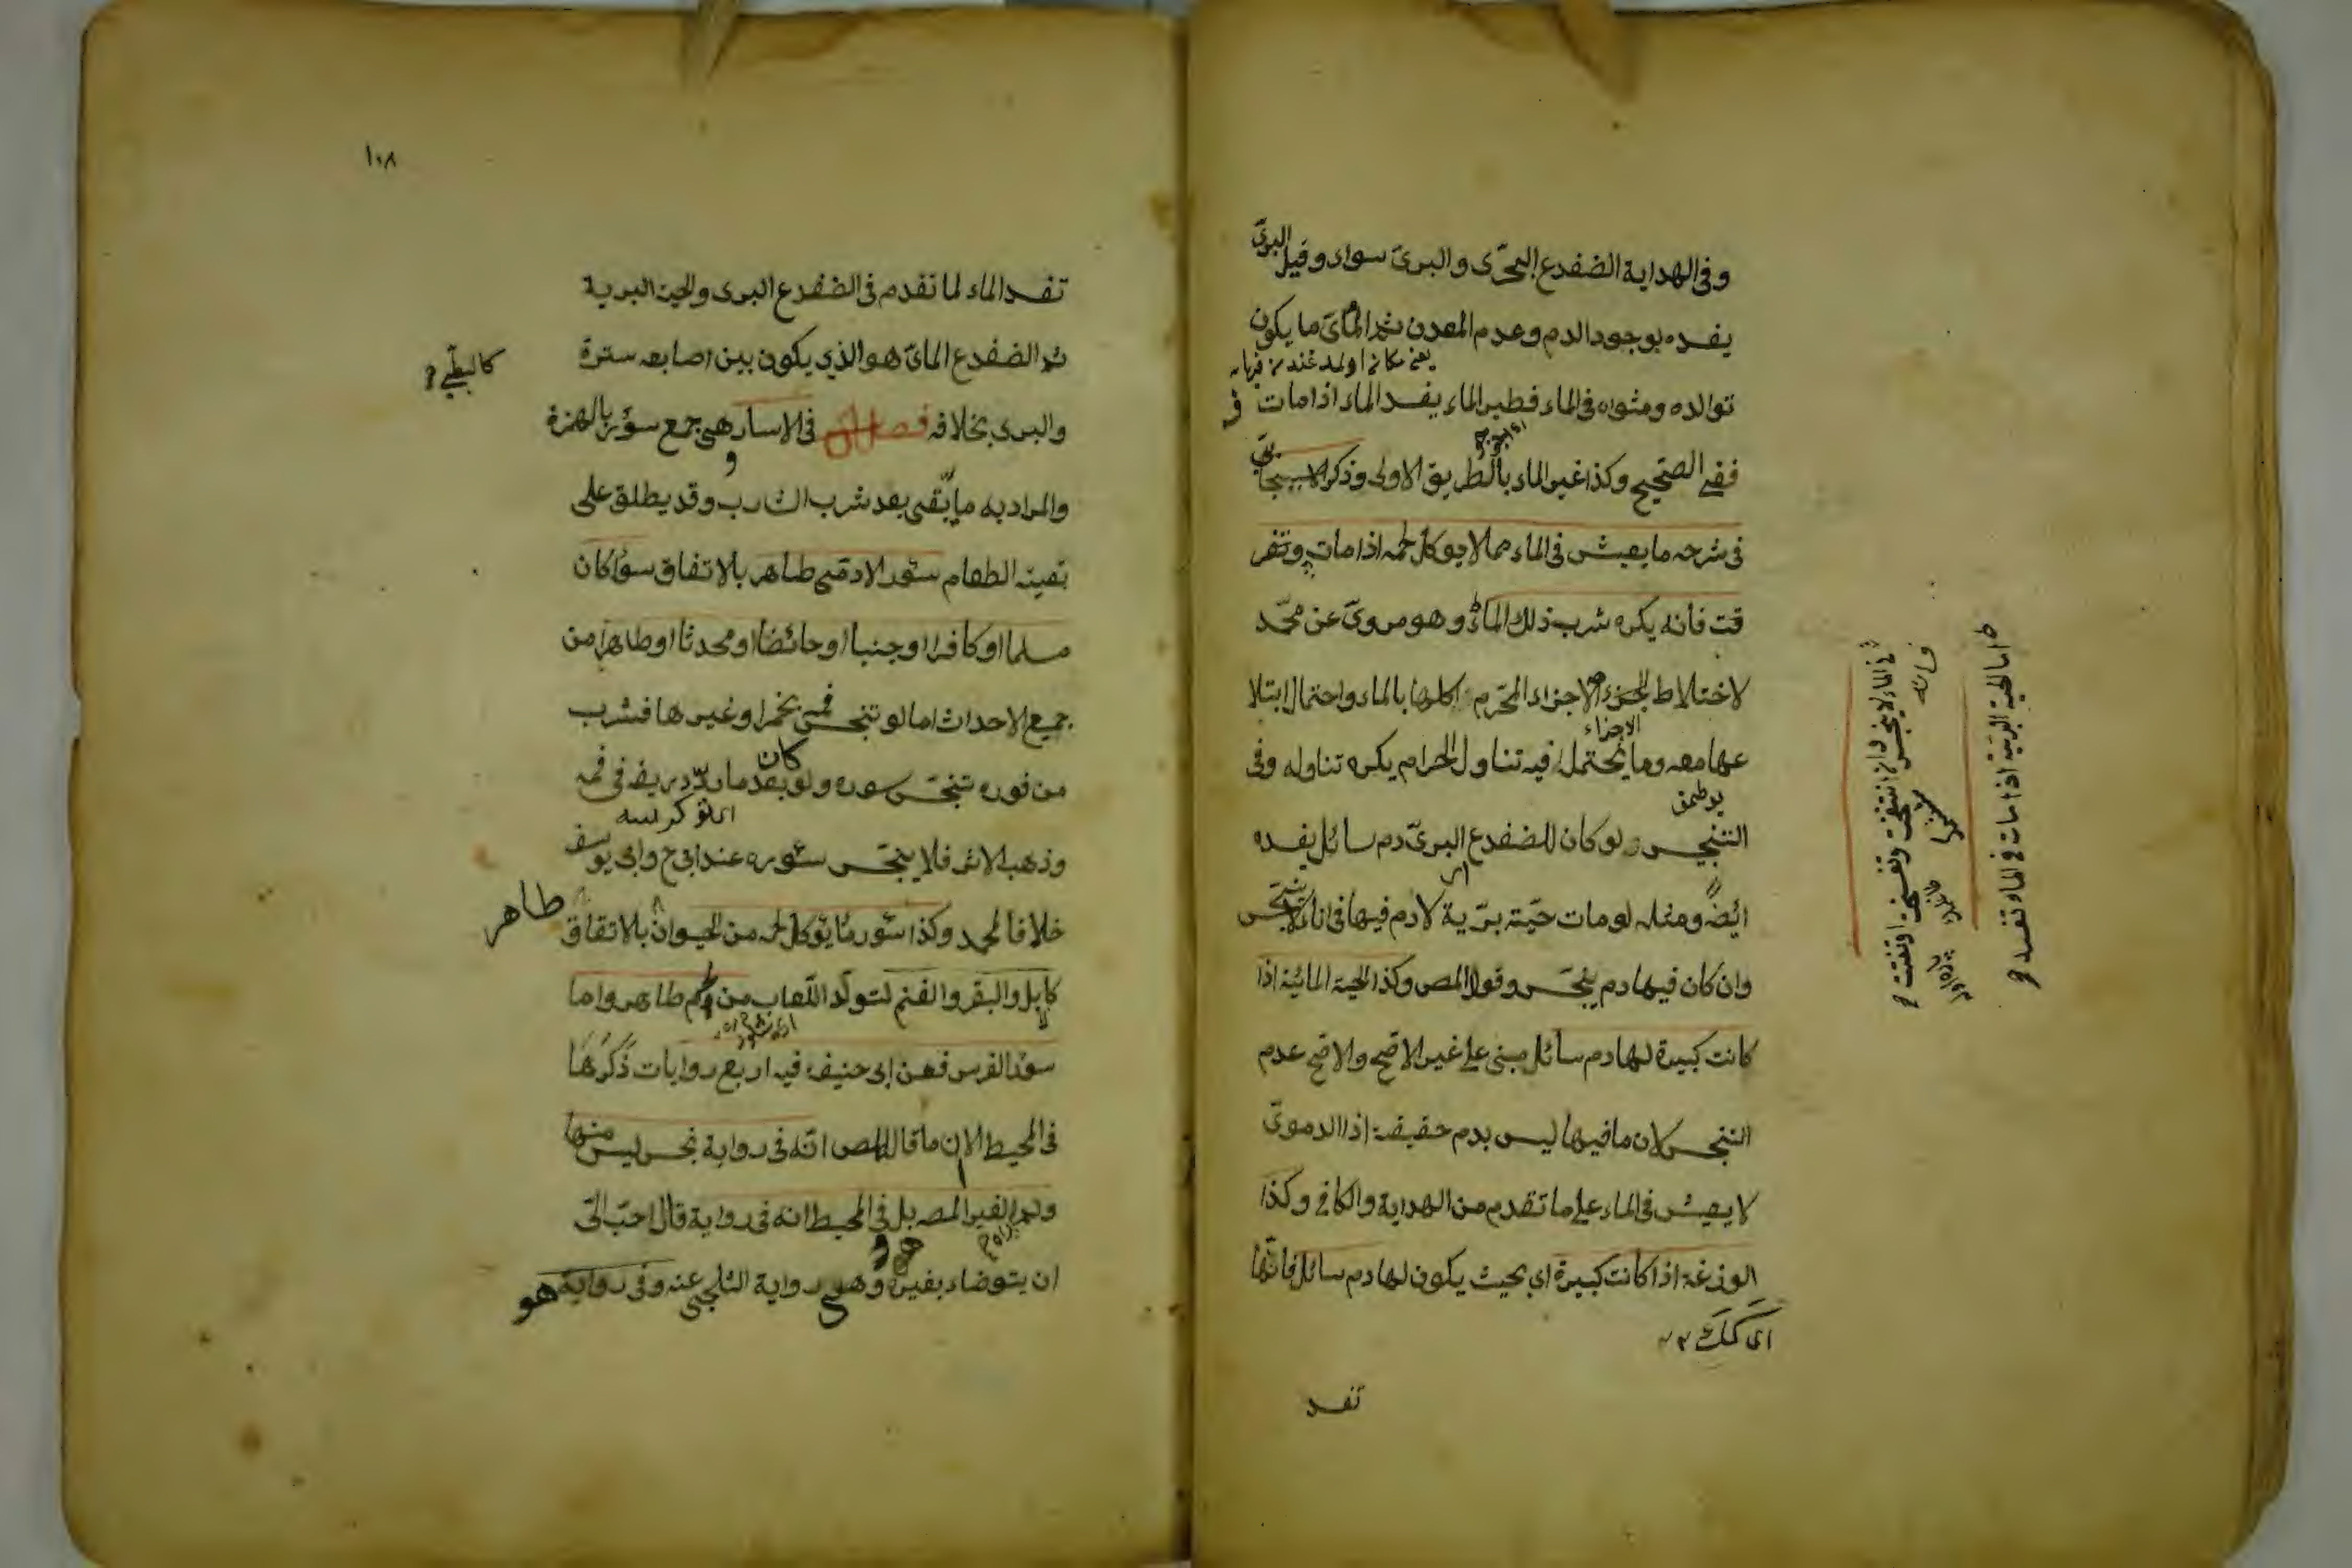 وفى الهداية الضفدع البحرى والبرى سواء وقيل البرى
يفسده لوجود الدم وعدم المعدن ثم المائى ما يكون
توالده ومثواه فى الماء فطير الماء يفسد الماء اذا مات فى
ففى الصحيح وكذا غير الماء بالطريق الاولى وذكر الاسبيجابى
فى شرحه ما يعيش فى الماء مما لا يوكل لحمه اذا مات وتفر
قت فانه يكره شرب ذلك الماء وهو مروى عن محمد
لاختلاط الاجزاء المحرم اكلها بالماء واحتمال ابتلا
عها معه وما يحتمل فيه تناول الحرام يكره تناوله وفى
الاجزاء
التنجيس ولو كان للضفدع البرى دم سائل يفسده
ايضا ومثله لو مات حية برية لا دم فيها فى اناء لا ينجس
وان كان فيها دم ينجس وقول المص وكذا الحية المائية اذا
كانت كبيرة لها دم سائل مبنى على غير الاصح والاصح عدم
التنجس لان ما فيها ليس بدم حقيقة اذ الدموى
لا يعيش فى الماء على ما تقدم من الهداية والكافى وكذا
الوزغة اذا كانت كبيرة اى بحيث يكون لها دم سائل فانها
تفسد
اما الحية البرية اذا مات فى الماء تفسد
فى الماء لا ينجس وان انتفخت وتفسخت
فانه
١٠٨
تفسد الماء لما تقدم فى الضفدع البرى والحية البرية
ثم الضفدع المائى هو الذى يكون بين اصابعه سترة
كالبطى
والبرى بخلافه فصل فى الاسار هى جمع سؤر بالهمزة
والمراد به ما يبقى بعد شرب الشارب وقد يطلق على
بقية الطعام سؤر الادمى طاهر بالاتفاق سواء كان
مسلما او كافرا او جنبا او حائضا او محدثا او طاهرا من
جميع الاحداث اما لو تنجس فمه بخمر او غيرها فشرب
من فوره تنجس سوره ولو كان بعد ما ردد ريقه فى فمه
وذهب الاثر فلا ينجس سئوره عند ابى ح وابى يوسف
خلافا لمحمد وكذا سئور ما يؤكل لحمه من الحيوان بالاتفاق طاهر
كابل والبقر والغنم لتولد اللعاب من لحم طاهر واما
سؤر الفرس فعن ابى حنيفة فيه اربع روايات ذكرها
فى المحيط الا ان ما قال المص انه فى رواية نجس ليس منها
ولم لغير المص بل فى المحيط انه فى رواية قال احب الى
ان يتوضاء بغيره وهو رواية الثلجى عنه وفى رواية هو